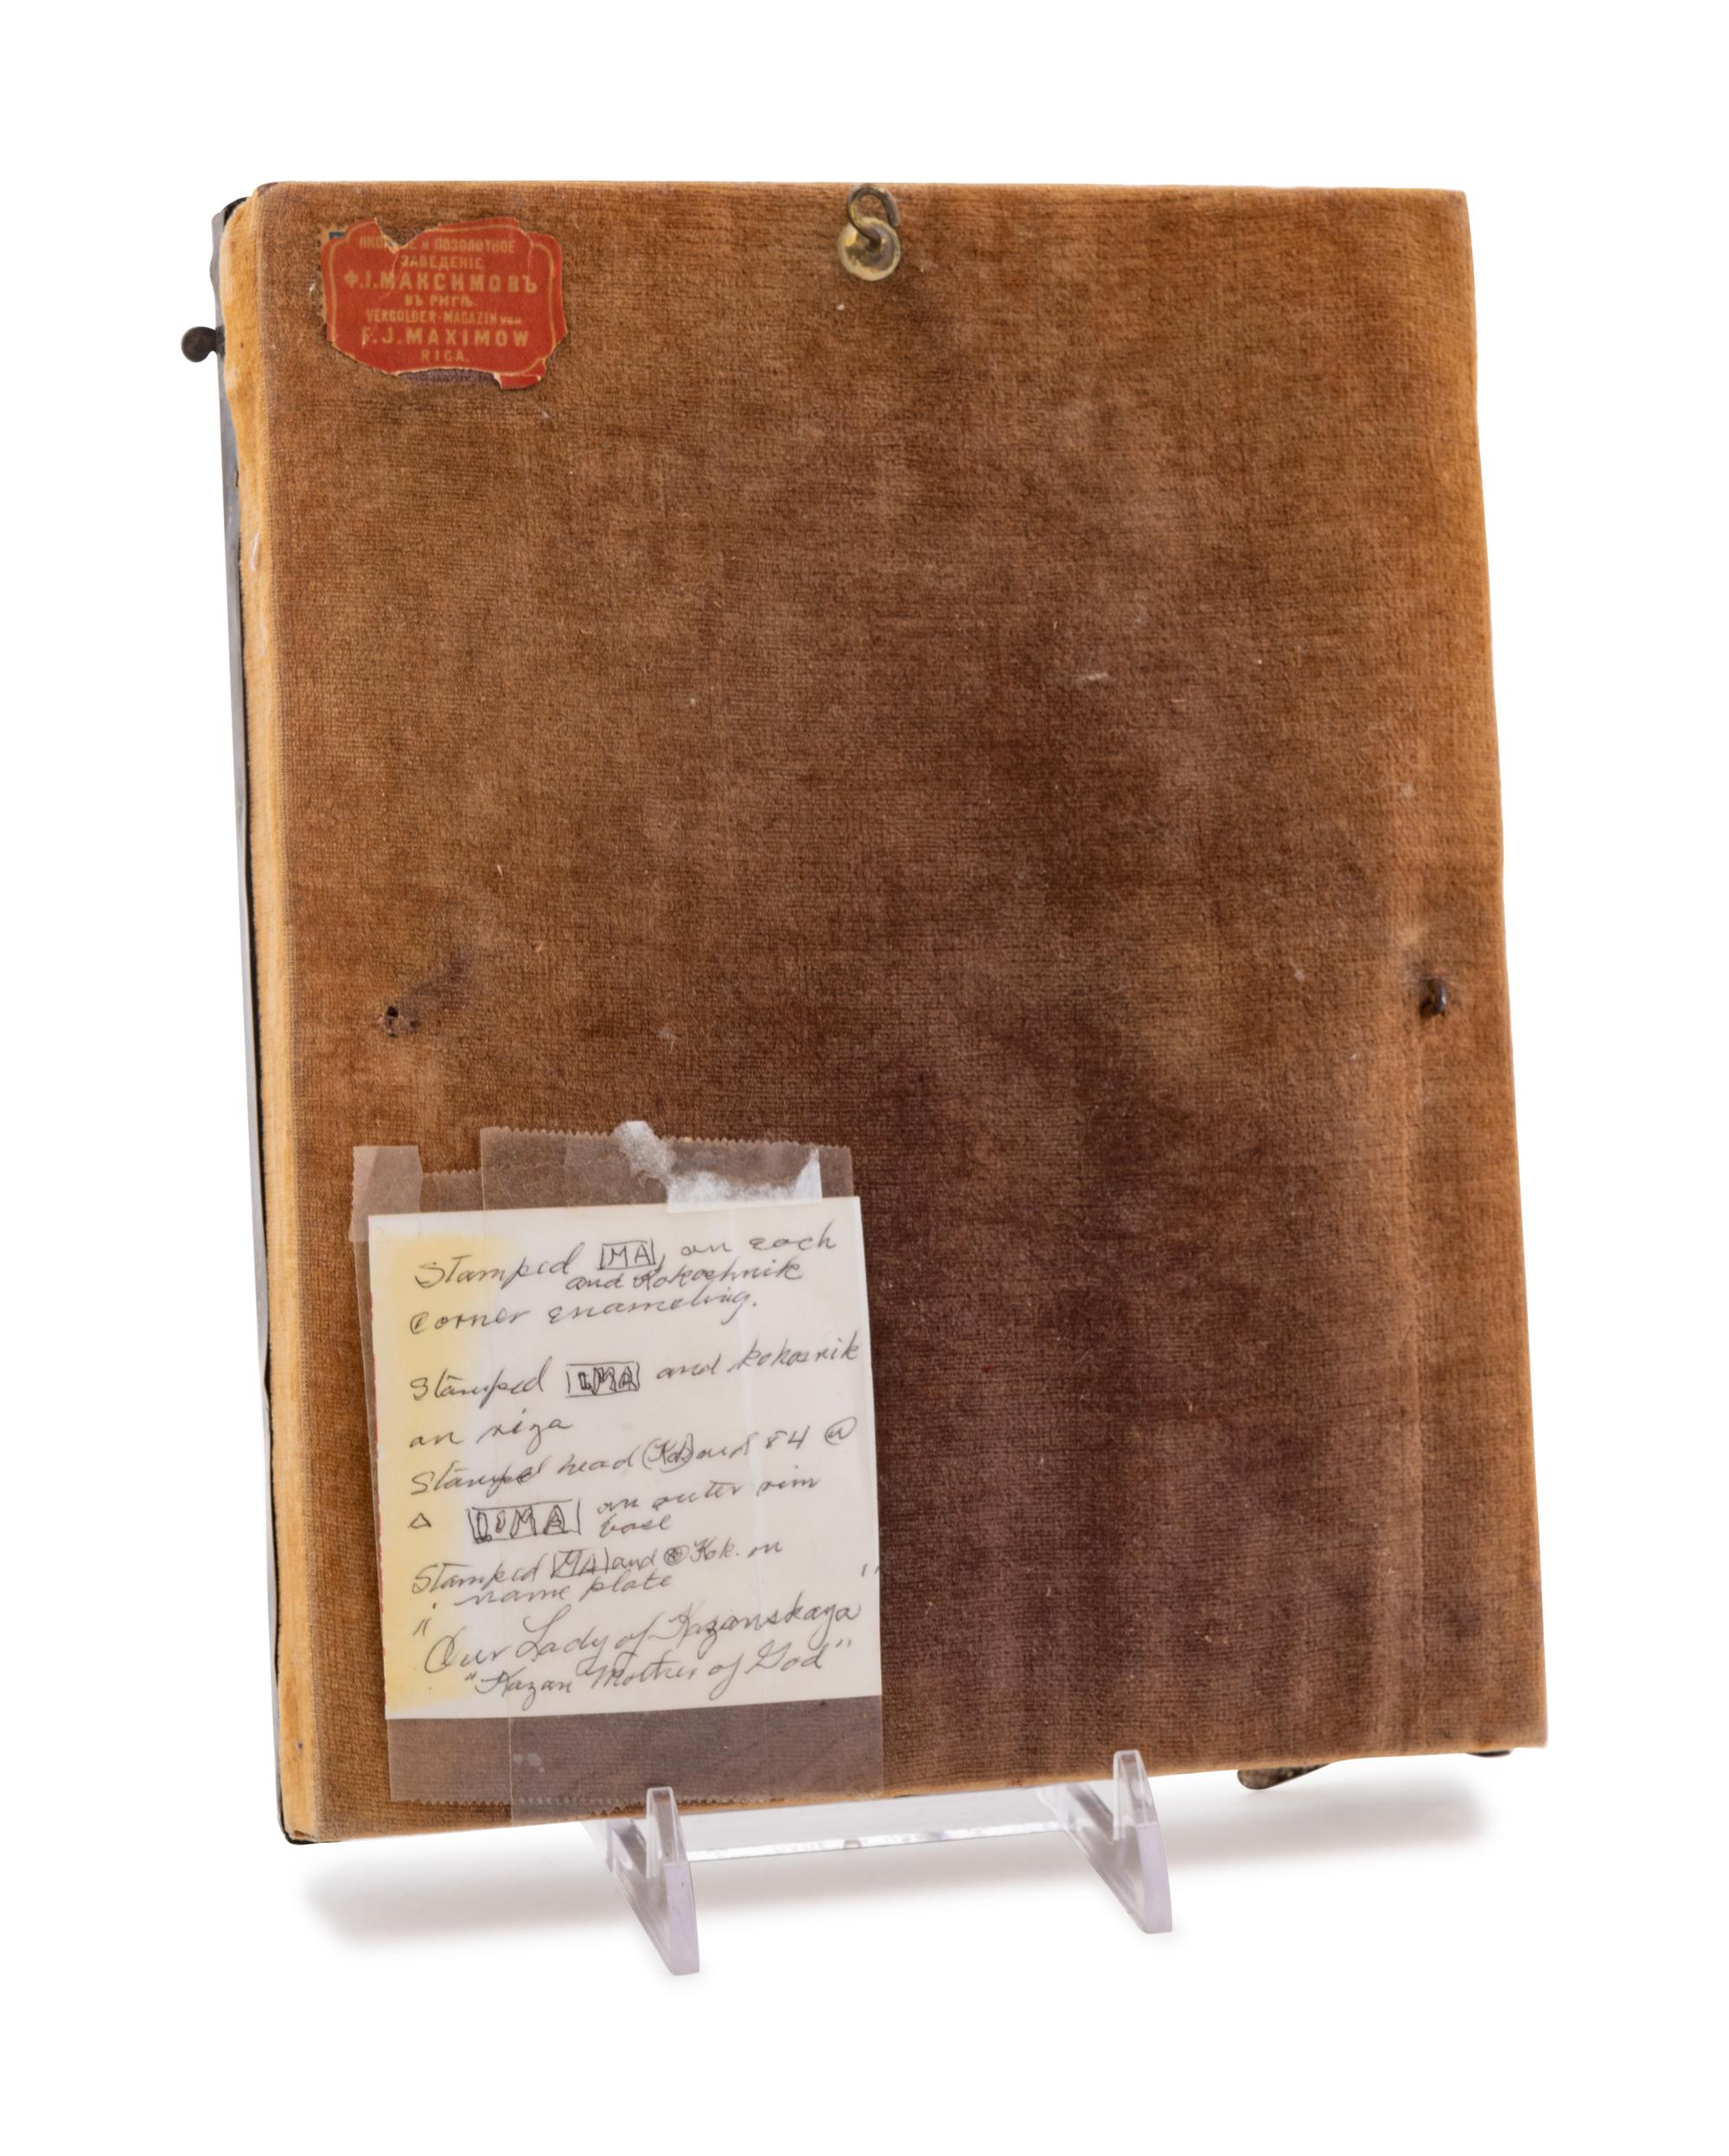 И ПОЗОЛОТНОЕ
ЗАВЕДЕНІЕ
Ф.І.МАКСИМОВЪ
ВЪ РИГѢ.
VERGOLDER-MAGAZIN von
F.J.MAXIMOW
RIGA.
Stamped MA, on each
and Kokoshnik
corner enameling.
Stamped and kokosnik
on riza
Stamped head (Kok) and 84 @
Δ on outer rim
base
Stamped MA and Kok. on
name plate
"Our Lady of Kazanskaya"
"Kazan Mother of God"